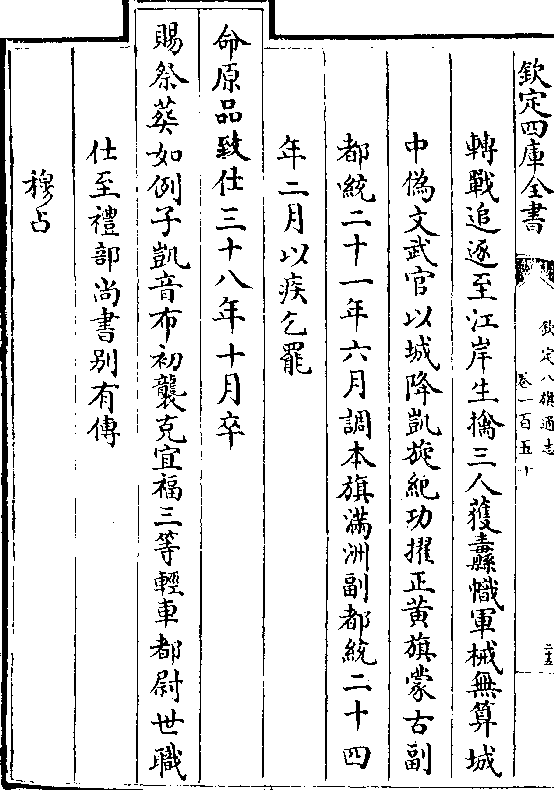 欽定四庫全書
欽定八旗通志
卷一百五十
二十五
轉戰追逐至江岸生擒三人獲纛幟軍械無算城
中偽文武官以城降凱旋紀功擢正黃旗蒙古副
都統二十一年六月調本旗滿洲副都統二十四
年二月以疾乞罷
命原品致仕三十八年十月卒
賜祭葬如例子凱音布初襲克宜福三等輕車都尉世職
仕至禮部尚書别有傳
穆占